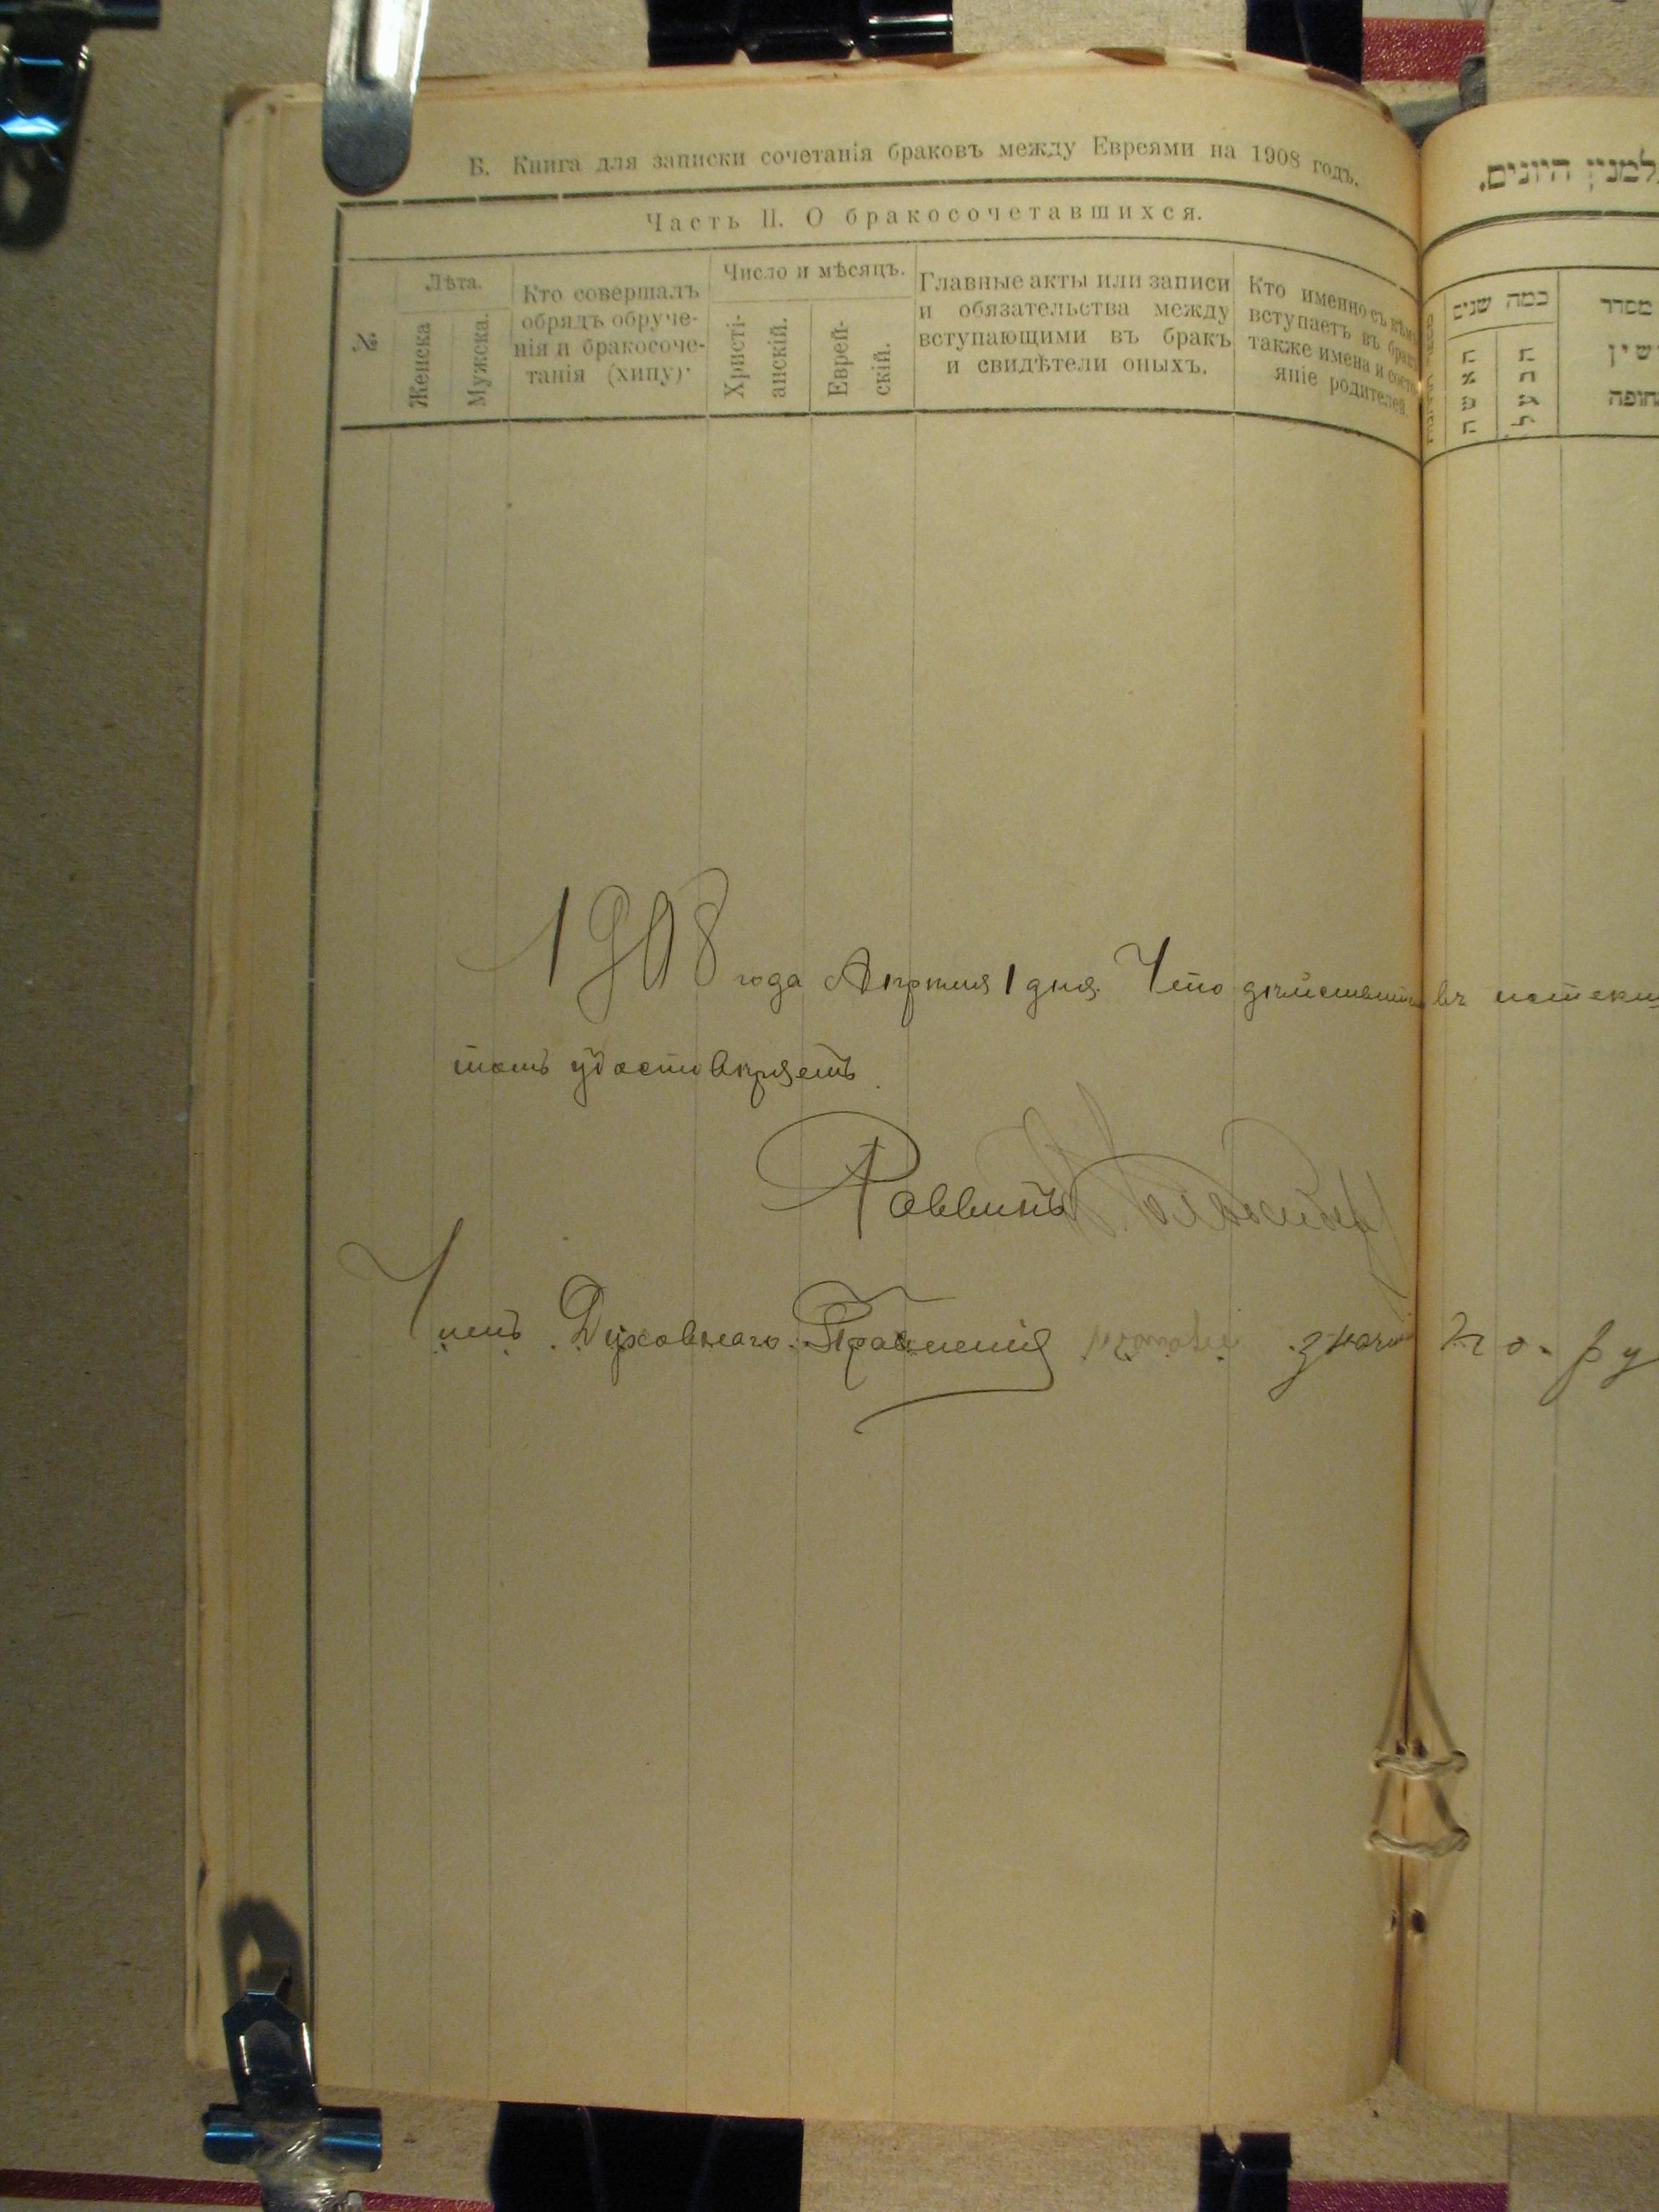 Б. Книга для записки сочетанія браковъ между Евреями на 1908 годъ.
Часть II. О бракосочетавшихся.
№
Лѣта.
Женска
Мужска.
Кто совершалъ
обрядъ обруче-
нія и бракосоче-
танія (хипу).
Число и мѣсяцъ.
Христі-
анскій.
Еврей-
скій.
Главные акты или записи
и обязательства между
вступающими въ бракъ
и свидѣтели оныхъ.
Кто именно съ кѣмъ
вступаетъ въ бракъ
также имена и состо-
яніе родителей.
היונים.
כמה שנים
האשה
הבעל
מסדר
1908 года Апрѣля 1 дня. Что въ
томъ удостовѣряетъ
Раввинъ
Членъ Духовнаго Правленія